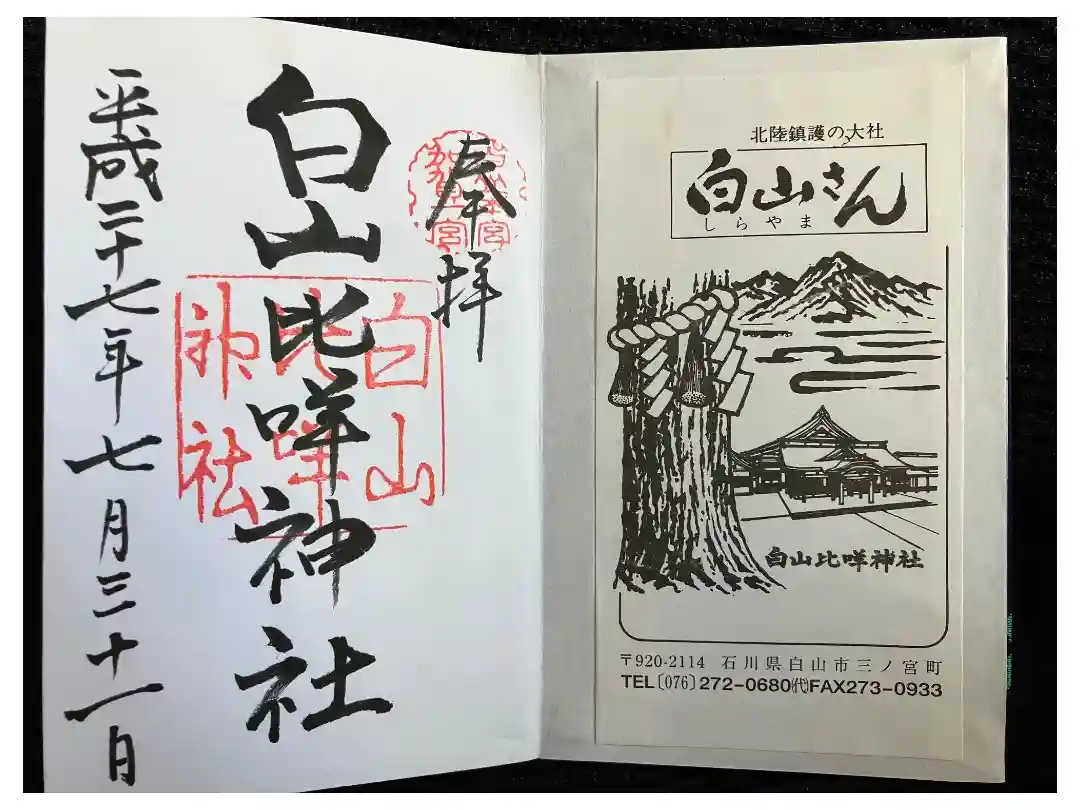 北陸鎮護の大社
白山さん
しらやま
白山比咩神社
〒920-2114 石川県白山市三ノ宮町
TEL〔076〕272-0680㈹FAX273-0933
奉拝
白山比咩神社
白山
比咩
神社
平成二十七年七月三十一日